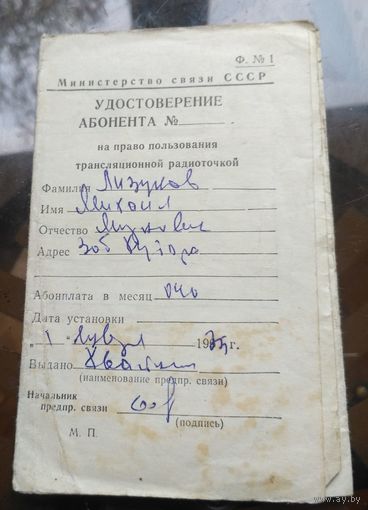 Ф. № 1
Министерство связи СССР
УДОСТОВЕРЕНИЕ
АБОНЕНТА №
на право пользования
трансляционной радиоточкой
Фамилия Лизуков
Имя Михаил
Отчество
Адрес
Абонплата в месяц 040
Дата установки
„ 1 " 197 г.
Выдано
(наименование предпр. связи)
Начальник
предпр. связи
(подпись)
М. П.
www.ay.by